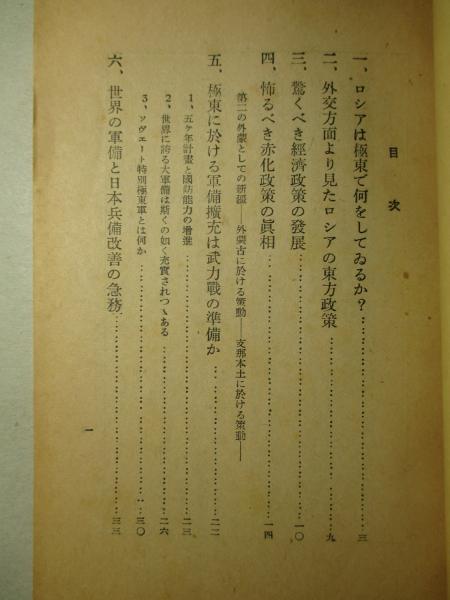 目次
一、ロシアは極東で何をしてゐるか？……三
二、外交方面より見たロシアの東方政策……九
三、驚くべき經濟政策の發展……一〇
四、怖るべき赤化政策の眞相……一四
第二の外蒙としての新疆——外蒙古に於ける策動——支那本土に於ける策動——
五、極東に於ける軍備擴充は武力戰の準備か……二二
1、五ケ年計畫と國防能力の增進……二三
2、世界に誇る大軍備は斯くの如く充實されつゝある……二六
3、ソヴエート特別極東軍とは何か……三〇
六、世界の軍備と日本兵備改善の急務……三三
一